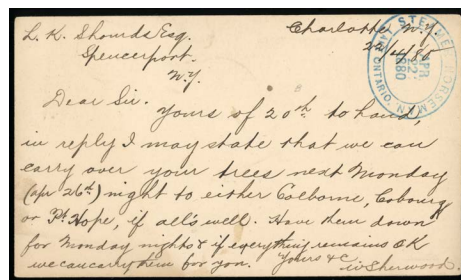 L. K. Shourds Esq.
Charlotte N.Y.
Spencerport.
22/4/80
N.Y.
STEAMER NORSEMAN
APR
22
1880
ONTARIO
Dear Sir.
Yours of 20th to hand,
in reply I may state that we can
carry over your trees next Monday
(apr 26th) night to either Colborne, Cobourg
or Pt. Hope, if all's well. Have them down
for Monday night & if everything remains OK
we can carry them for you. Yours &c
Sherwood